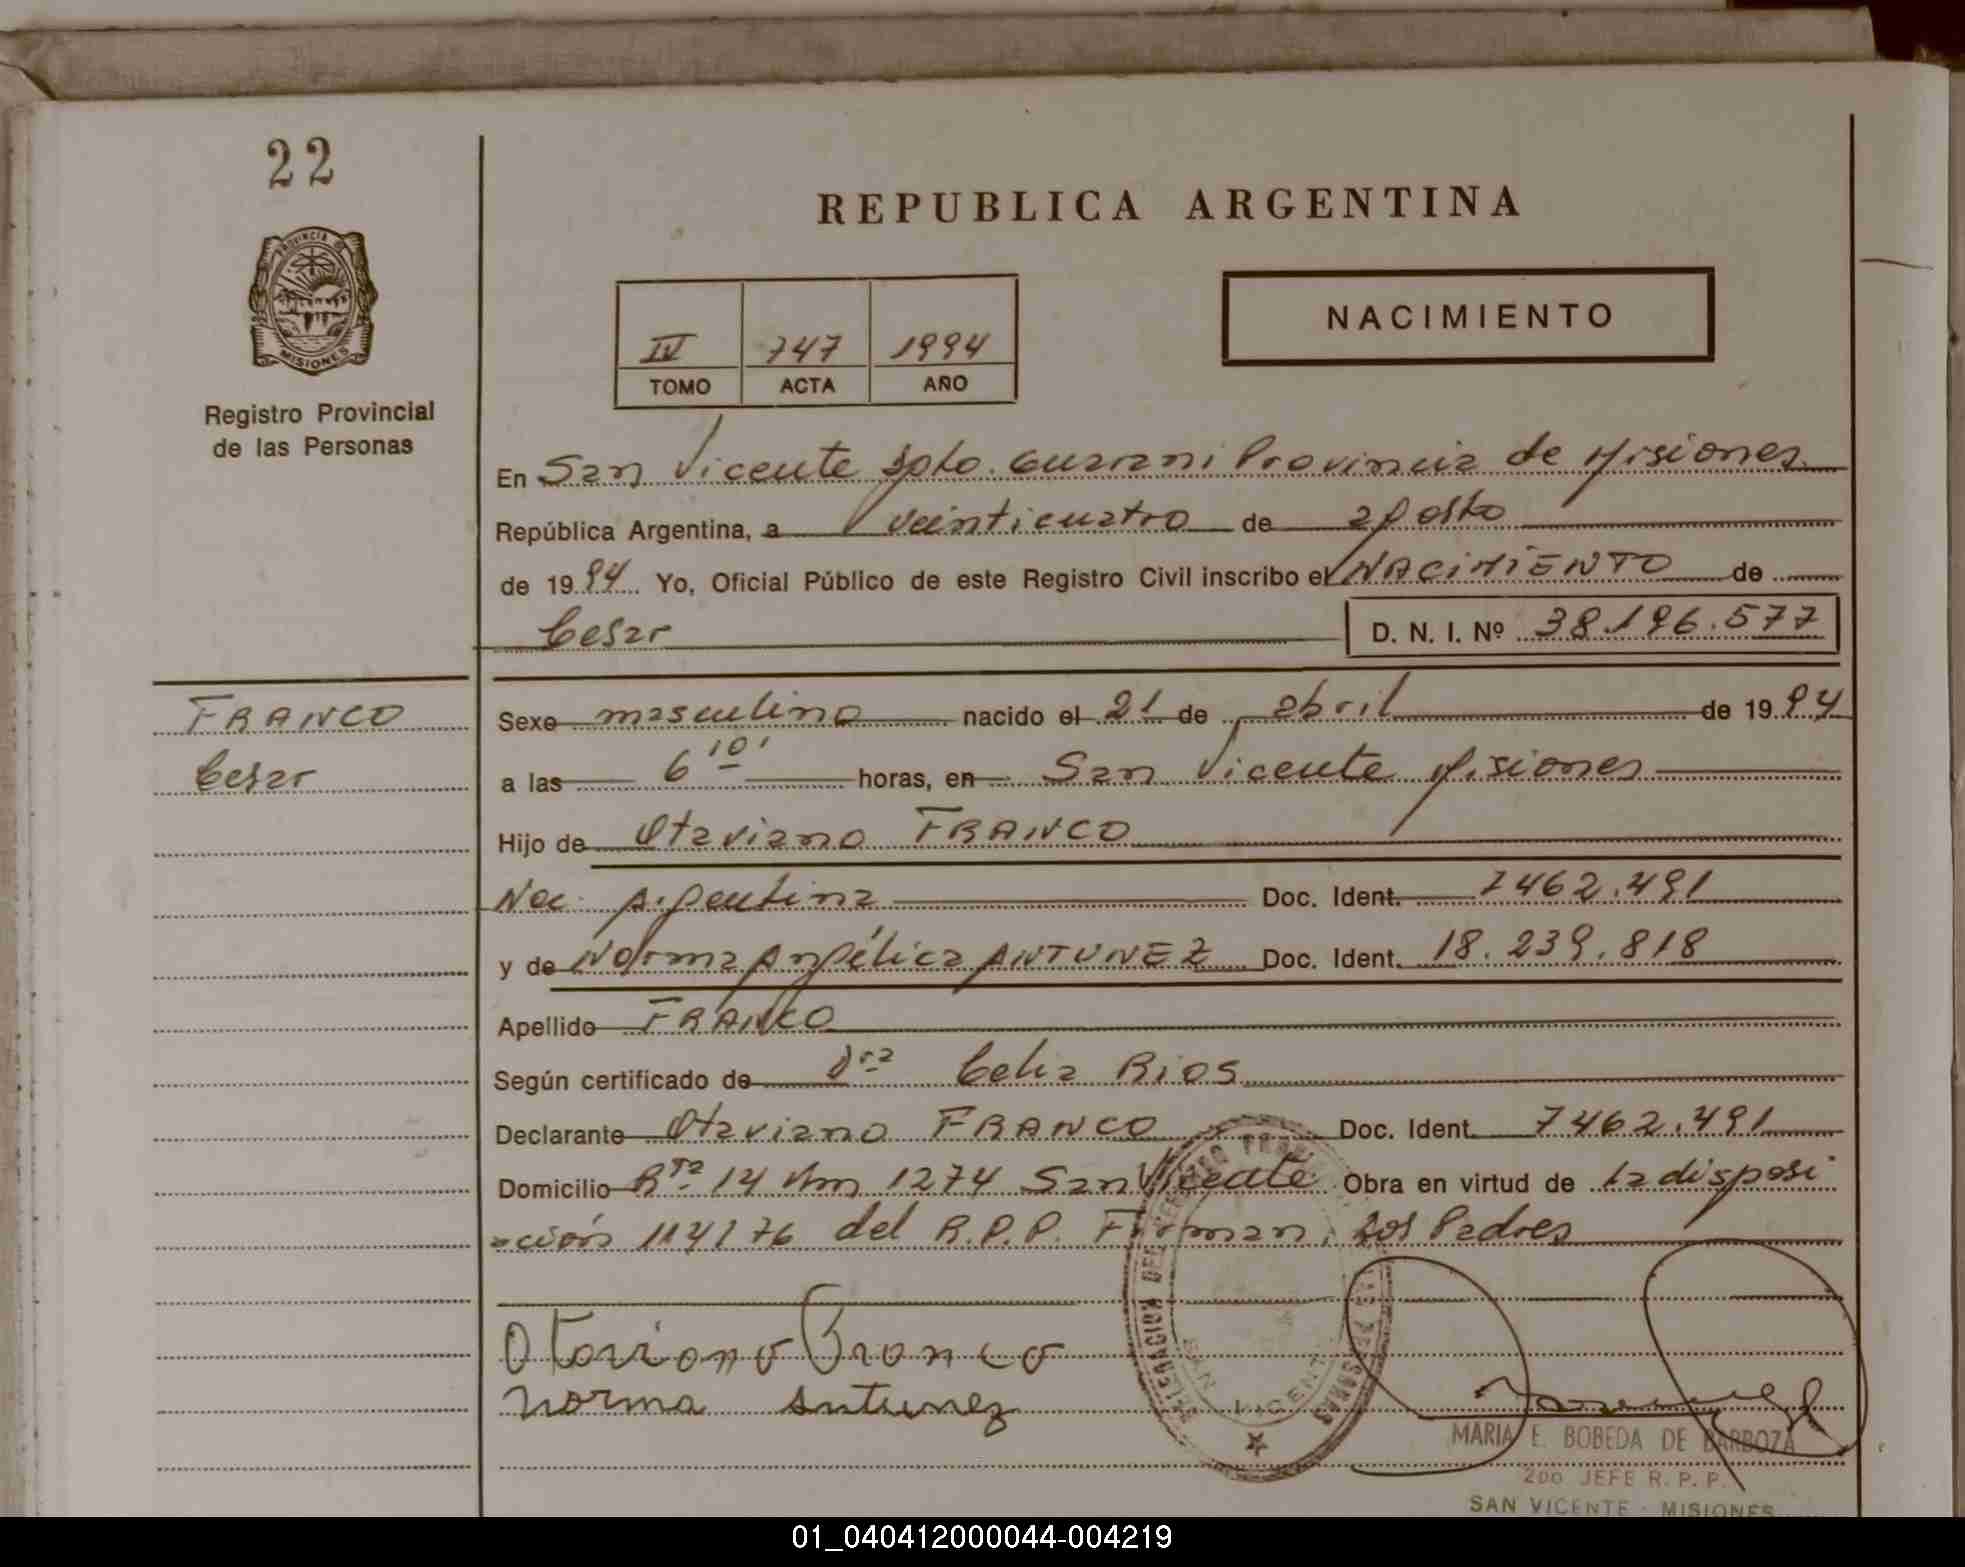 22
REPUBLICA ARGENTINA
PROVINCIA DE
MISIONES
Registro Provincial
de las Personas
NACIMIENTO
IV 747 1994
TOMO ACTA AÑO
En San Vicente Dpto. Guarani Provincia de Misiones
República Argentina, a veinticuatro de agosto
de 1994 Yo, Oficial Público de este Registro Civil inscribo el NACIMIENTO de
Cesar D. N. I. Nº 38.196.577
FRANCO
Cesar
Sexo masculino nacido el 21 de abril de 1994
a las 6 10' horas, en San Vicente Misiones
Hijo de Otaviano FRANCO
Nac. Argentina Doc. Ident. 7462.491
y de Norma Angélica ANTUNEZ Doc. Ident. 18.239.818
Apellido FRANCO
Según certificado de Dra Celia Rios
Declarante Otaviano FRANCO Doc. Ident. 7462.491
Domicilio Rta 14 Km 1274 San Vicente Obra en virtud de la disposi
=ción 114/76 del R.P.P. Firman: Los Padres
Otaviano Franco
Norma Antunez
DELEGACION DEL REGISTRO PROVINCIAL DE LAS PERSONAS
SAN VICENTE
MARIA E. BOBEDA DE BARBOZA
2DO JEFE R. P. P.
SAN VICENTE - MISIONES
01_040412000044-004219